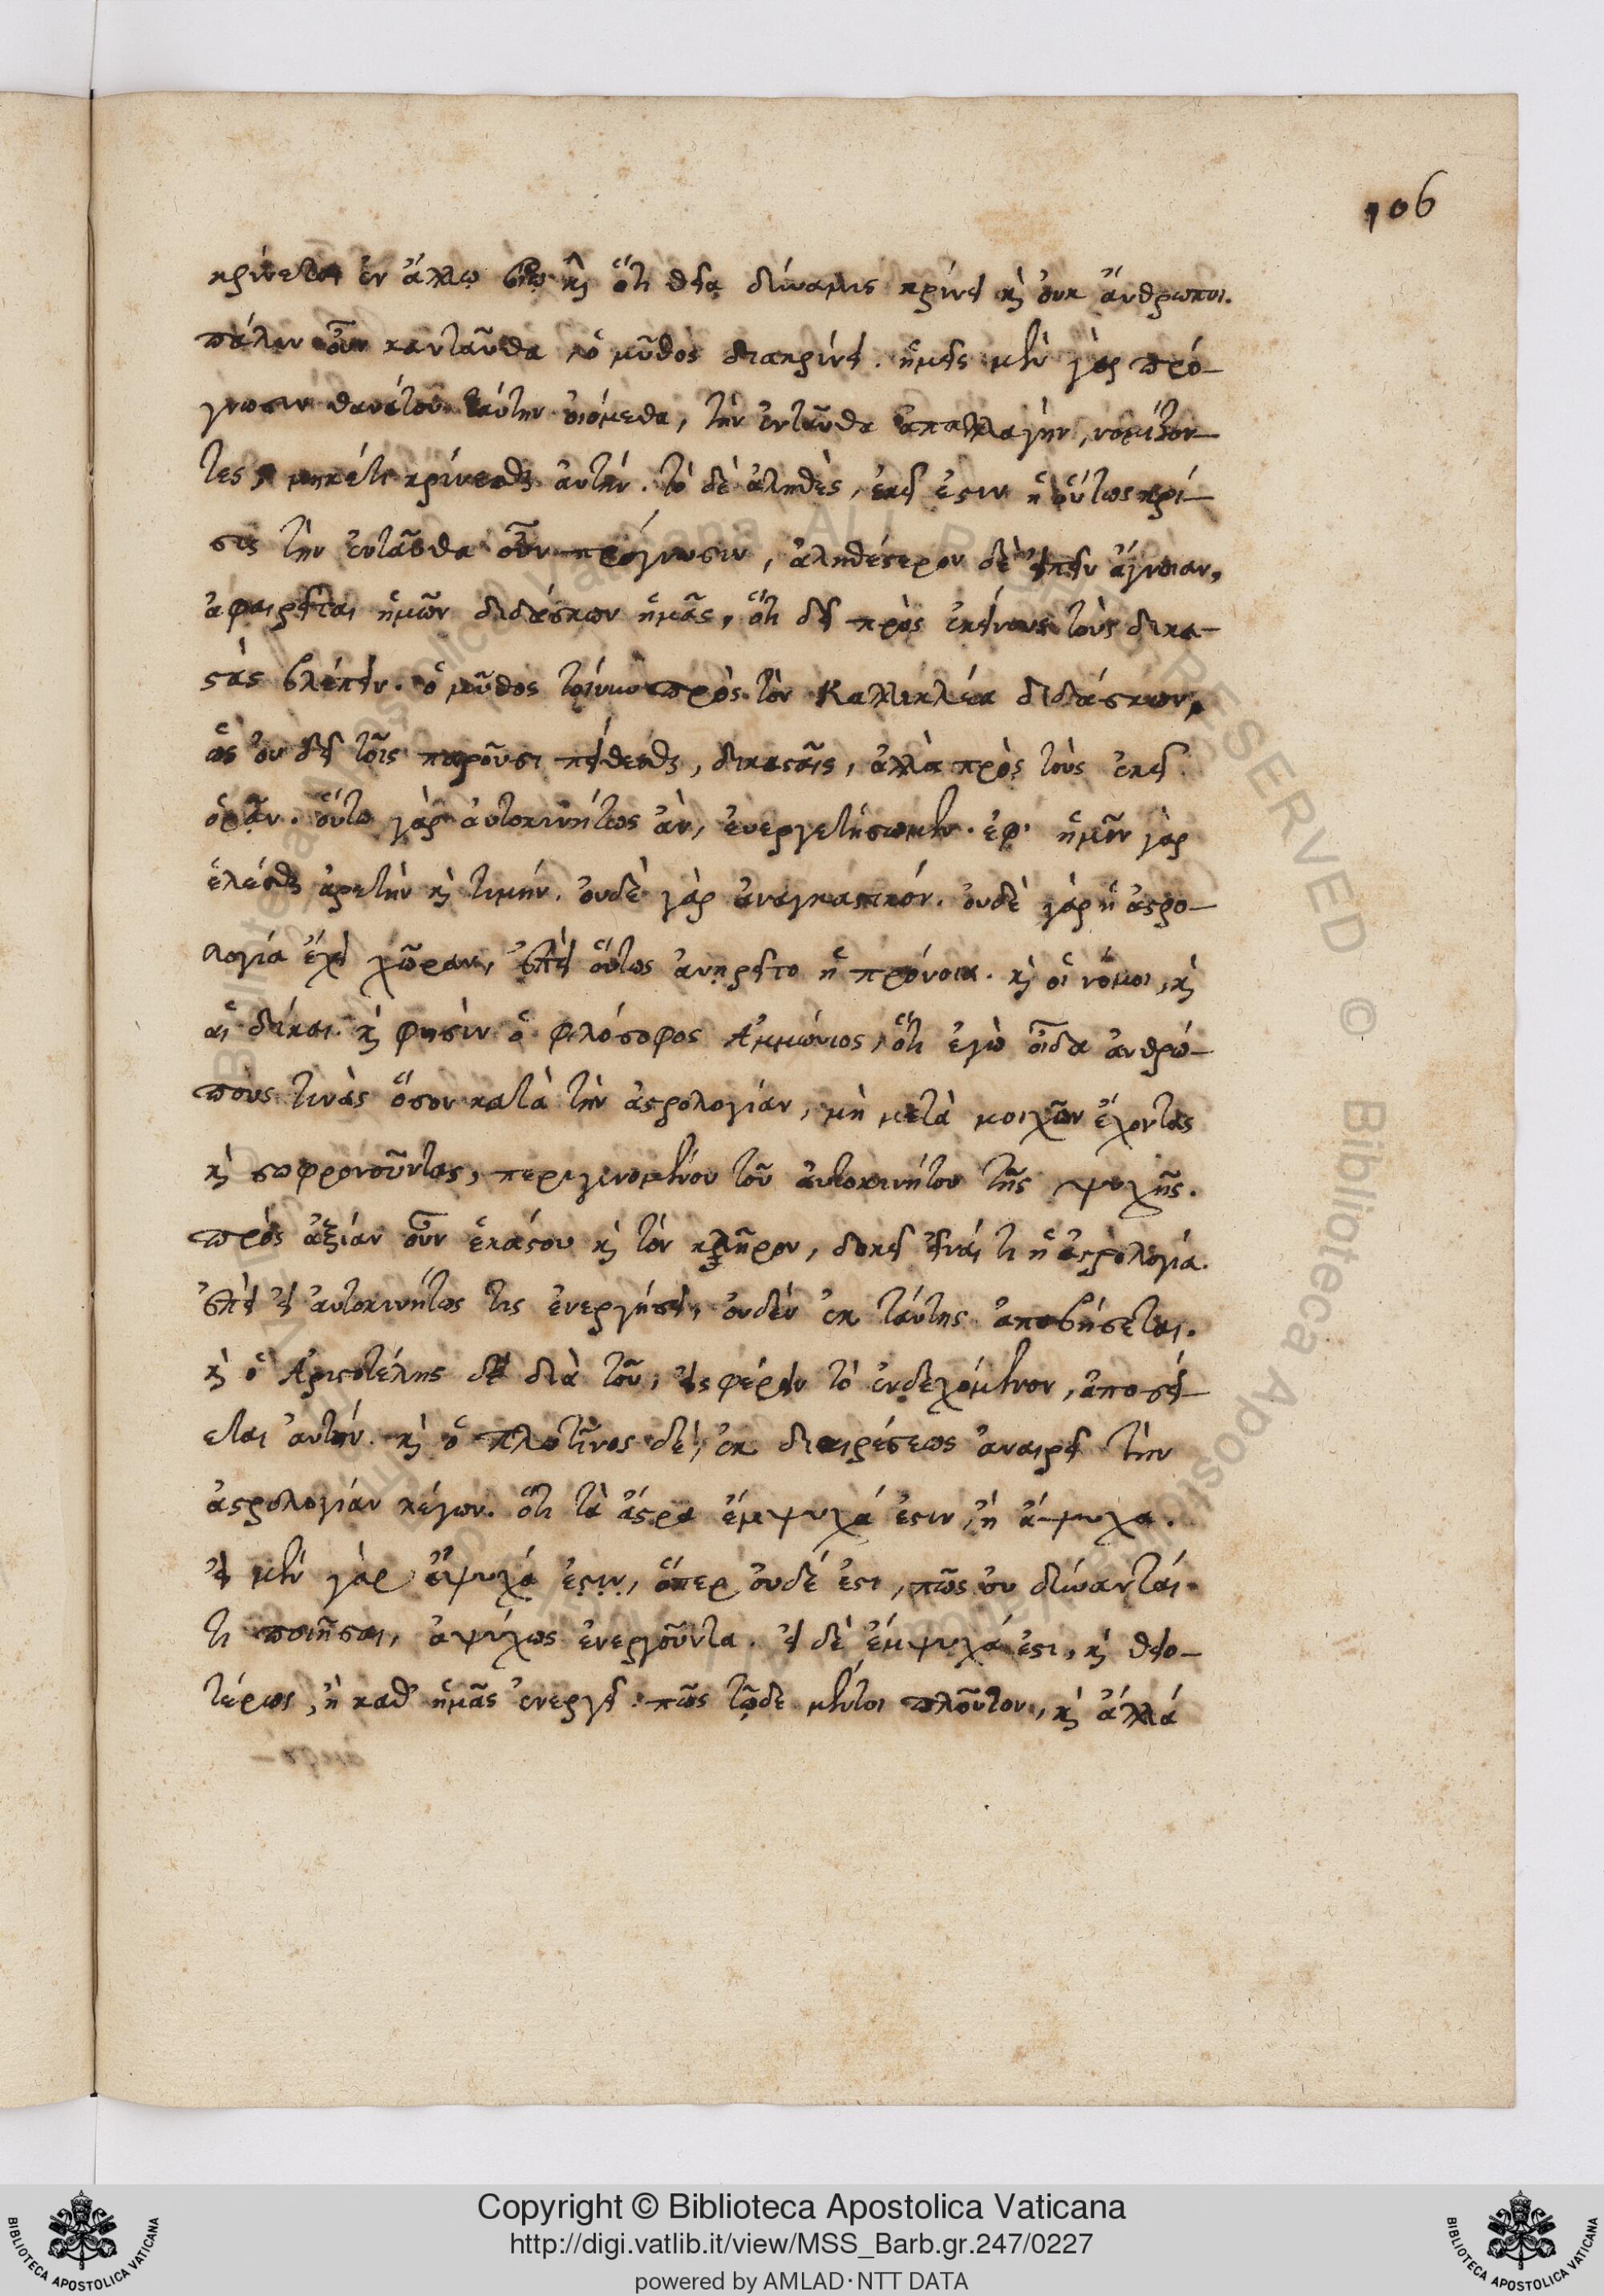 106
κρίνεται ἐν ἄλλῳ βίῳ κὶ ὅτι θεία δύναμις κρίνει κὶ οὐκ ἄνθρωποι.
πάλιν οὖν κανταῦθα ὁ μῦθος διακρίνει. ἡμεῖς μὲν γὰρ πρό-
γνωσιν θανάτου ταύτην οἰόμεθα, τὴν ἐνταῦθα ἀπαλλαγὴν, νομίζον-
τες, μηκέτι κρίνεσθαι αὐτήν. τὸ δὲ ἀληθὲς, ἐκεῖ ἐστιν ἡ ὄντως κρί-
σις τὴν ἐνταῦθα οὖν πρόγνωσιν, ἀληθέστερον δὲ εἰπεῖν ἄγνοιαν,
ἀφαιρεῖται ἡμῶν διδάσκων ἡμᾶς, ὅτι δεῖ πρὸς ἐκείνους τοὺς δικα-
στὰς βλέπειν. ὁ μῦθος τοίνυν πρὸς τὸν Καλλικλέα διδάσκων,
ὡς οὐ δεῖ τοῖς παροῦσι πείθεσθαι, δικασταῖς, ἀλλὰ πρὸς τοὺς ἐκεῖ
ὁρᾷν. οὕτω γὰρ αὐτοκινήτως ἀν, ἐνεργετήσωμεν. ἐφ' ἡμῖν γὰρ
ἑλέσθαι ἀρετὴν κὶ τιμήν. οὐδὲ γὰρ ἀναγκαστικόν. οὐδὲ γὰρ ἡ ἀστρο-
λογία ἔχει χῶραν, ἐπεὶ οὕτως ἀνῃρεῖτο ἡ πρόνοια. κὶ οἱ νόμοι, κὶ
αἱ δίκαι. κὶ φησὶν ὁ φιλόσοφος Ἀμμώνιος, ὅτι ἐγὼ οἶδα ἀνθρώ-
πους τινὰς ὅσον κατὰ τὴν ἀστρολογίαν, μὴ μετὰ μοιχῶν ἔχοντας
κὶ σωφρονοῦντας, περιγινομένου τοῦ αὐτοκινήτου τῆς ψυχῆς.
πρὸς ἀξίαν οὖν ἑκάστου κὶ τὸν κλῆρον, δοκεῖ εἶναί τι ἡ ἀστρολογία.
ἐπεὶ εἰ αὐτοκινήτως τις ἐνεργήσει, οὐδὲν ἐκ ταύτης ἀποβήσεται.
κὶ ὁ Ἀριστοτέλης δὲ διὰ τοῦ, εἰσφέρειν τὸ ἐνδεχόμενον, ἀποσεί-
εται αὐτήν. κὶ ὁ πλωτῖνος δὲ, ἐκ διαιρέσεως ἀναιρεῖ τὴν
ἀστρολογίαν λέγων. ὅτι τὰ ἄστρα ἔμψυχά ἐστιν, ἢ ἄψυχα.
εἰ μὲν γὰρ ἄψυχά ἐστιν, ὅπερ οὐδέ ἐστι, πῶς οὐ δύνανταί
τι ποιῆσαι, ἀψύχως ἐνεργοῦντα. εἰ δὲ ἔμψυχά ἐστι, κὶ θειο-
τέρως, ἢ καθ' ἡμᾶς ἐνεργεῖ. πῶς τῷδε μέντοι πλοῦτον, κὶ ἄλλά
Copyright © Biblioteca Apostolica Vaticana
http://digi.vatlib.it/view/MSS_Barb.gr.247/0227
powered by AMLAD·NTT DATA
BIBLIOTECA APOSTOLICA VATICANA
BIBLIOTECA APOSTOLICA VATICANA